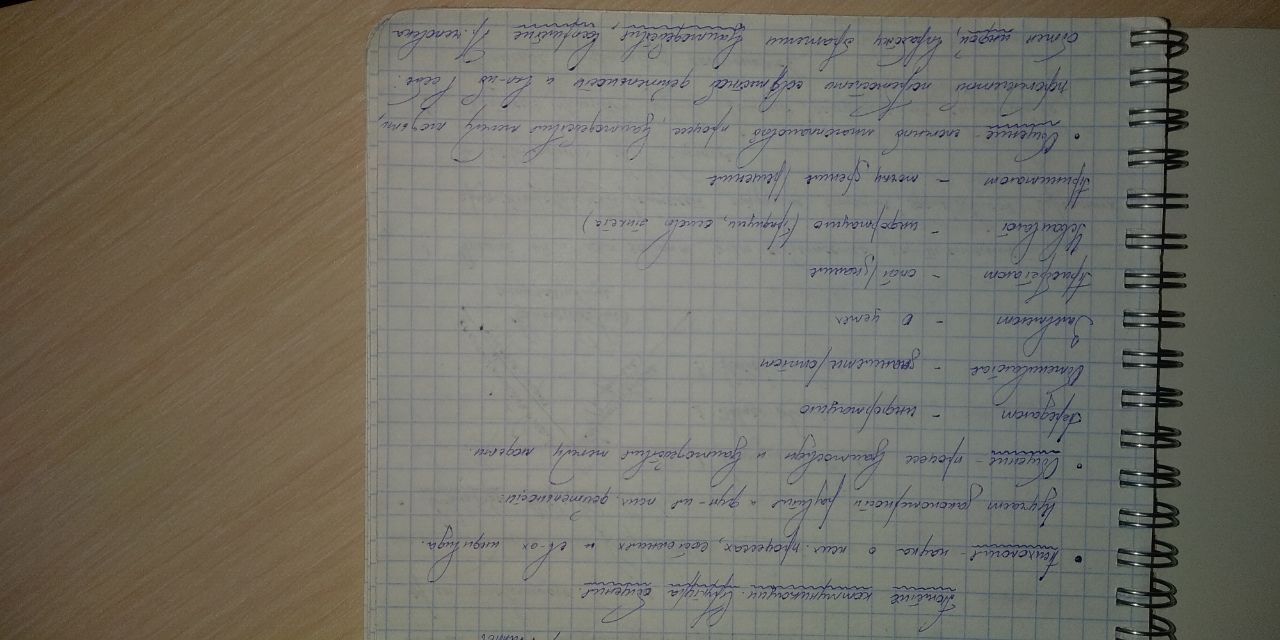 Понятие коммуникации. Структура общения.
• Психология - наука о псих. процессах, состояниях и св-ах индивида.
Изучает закономерности развития и фун-ия псих. деятельности.
• Общение - процесс взаимосвязи и взаимодействия между людьми.
Передают - информацию
Обмениваются - знаниями/опытом
Заявляют - о целях
Приобретают - опыт/знания
Усваивают - информацию (традиции, основы этикета)
Принимают - точку зрения/решения
• Общение - сложный многоплановый процесс взаимодействия между людьми,
порождаемый потребностями совместной деятельности и вкл-ий в себя:
обмен инфой, выработку стратегии взаимодействия, восприятие др. человека